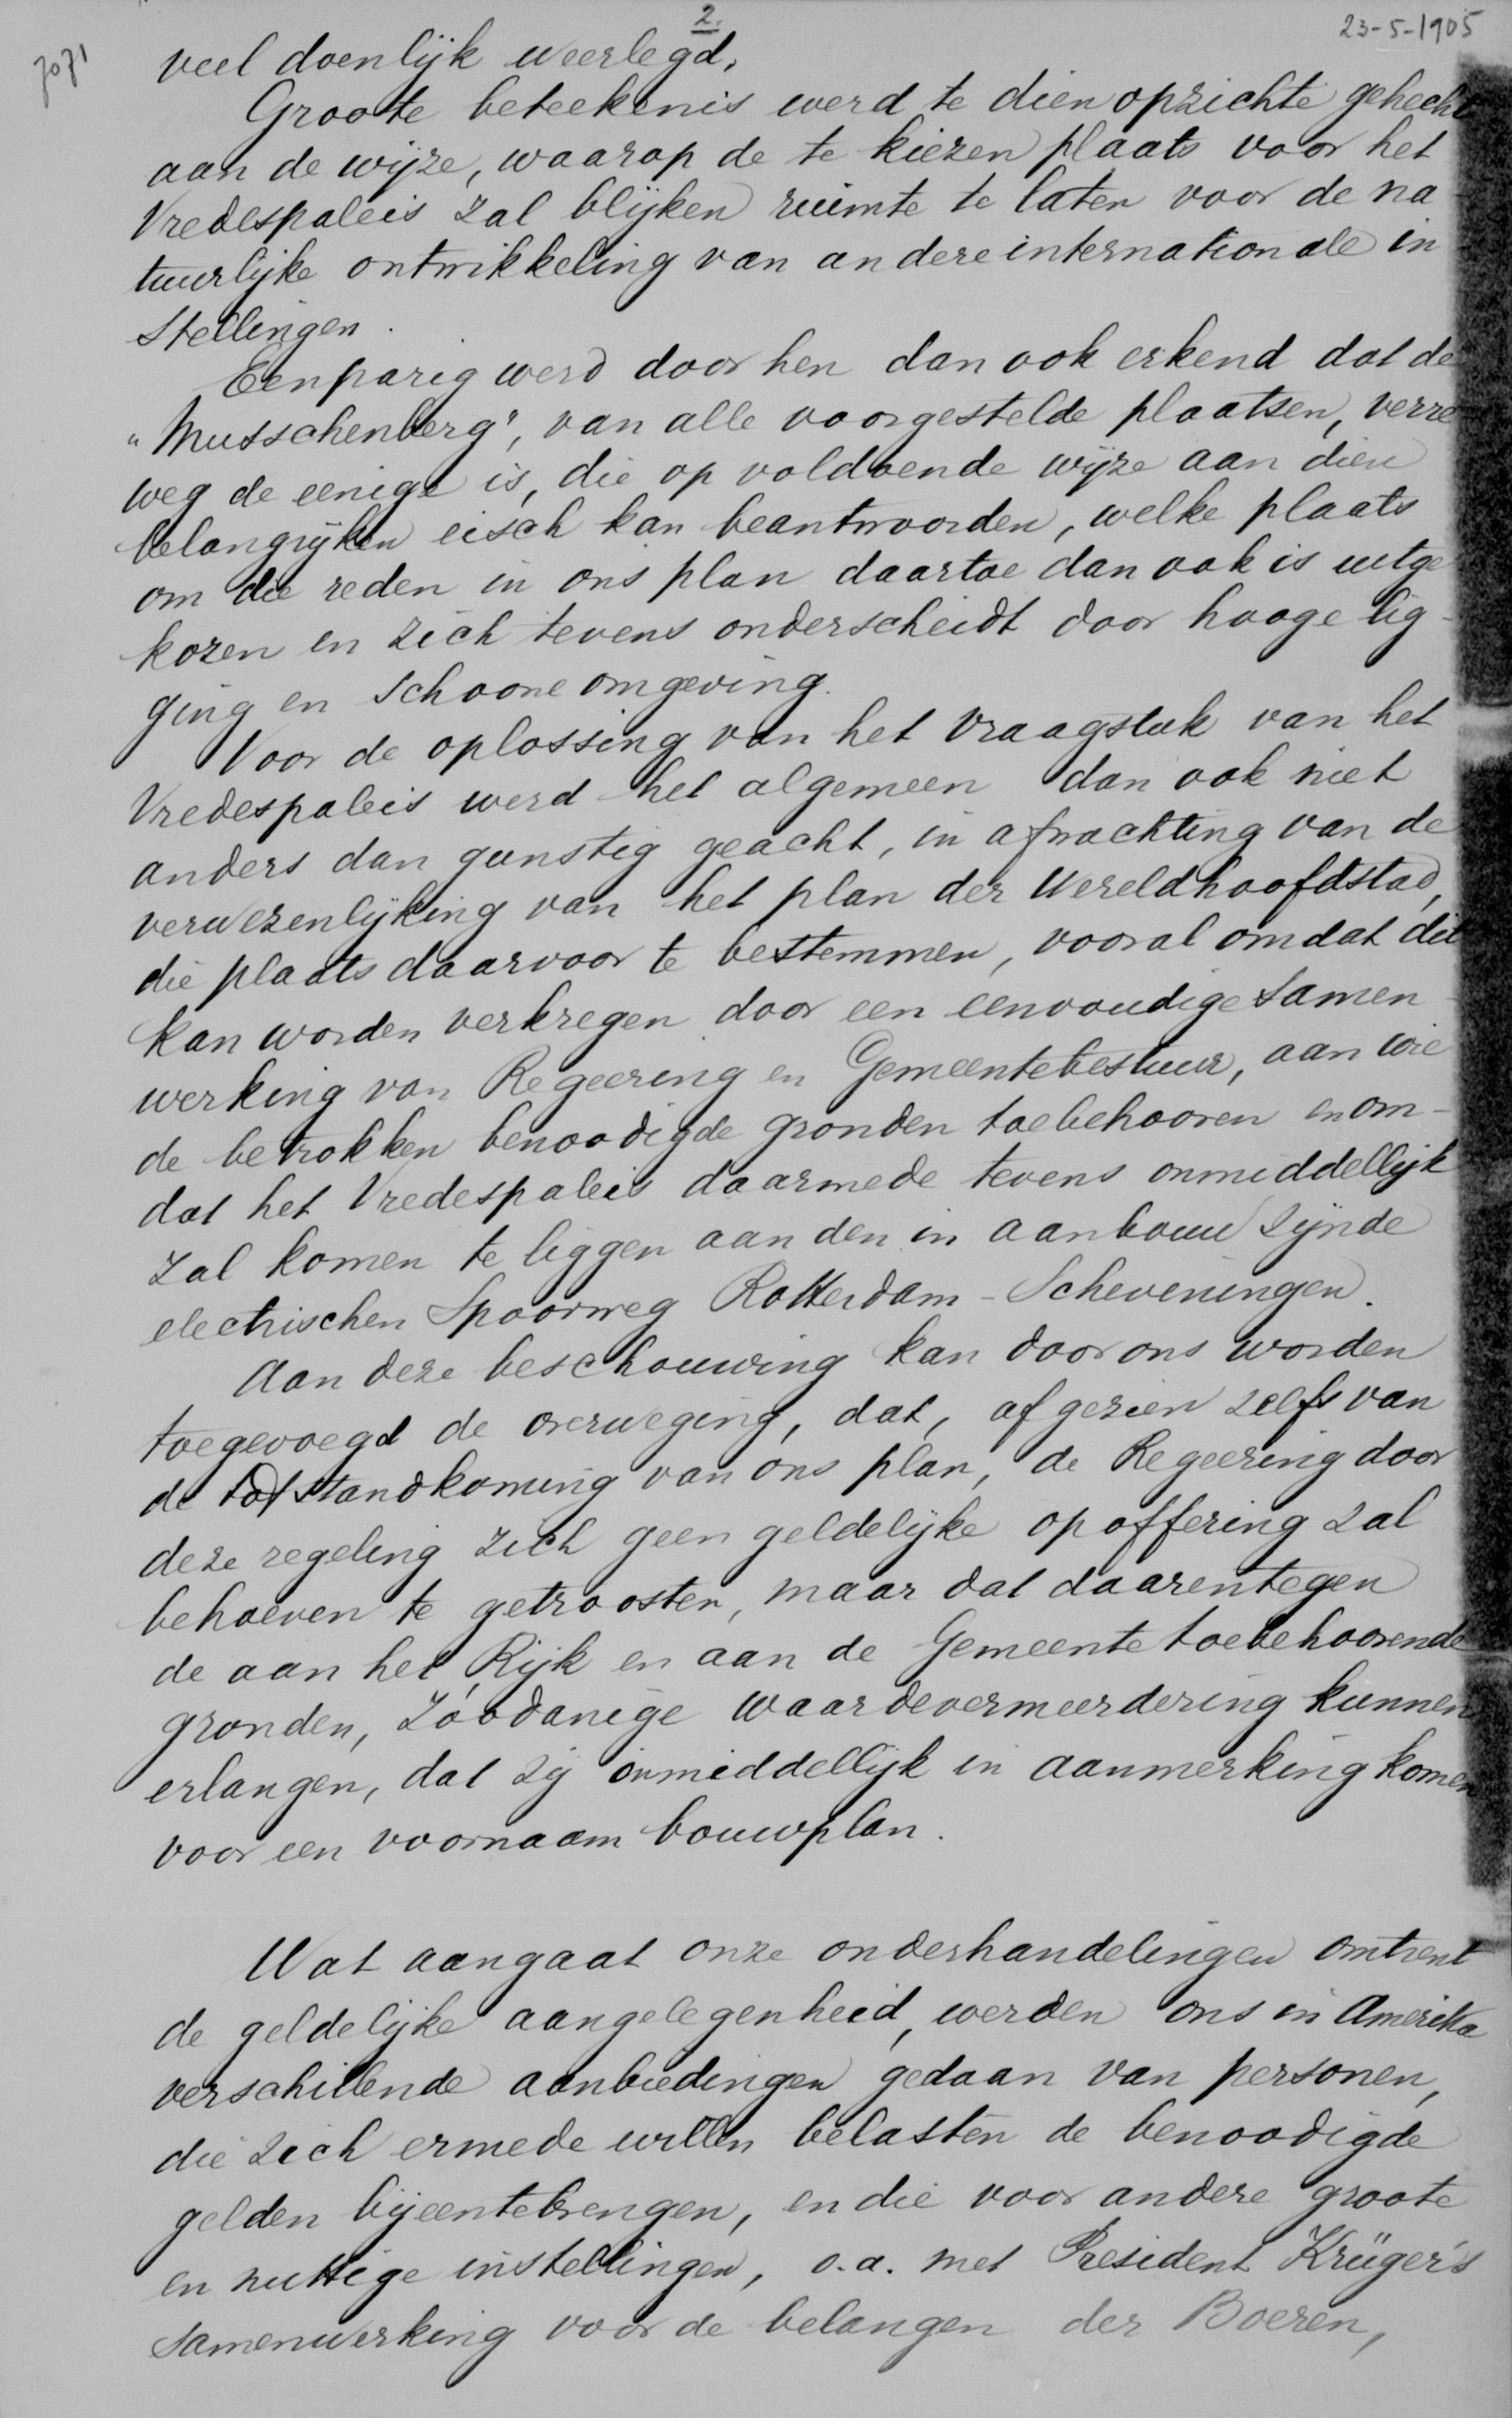 2.
23-5-1905
7071
veel doenlijk weerlegd.
Groote beteekenis werd te dien opzichte gehecht
aan de wijze, waarop de te kiezen plaats voor het
Vredespaleis zal blijken ruimte te laten voor de na
tuurlijke ontwikkeling van andere internationale in
stellingen.
Eenparig werd door hen dan ook erkend dat de
"Musschenberg", van alle voorgestelde plaatsen, verre
weg de eenige is, die op voldoende wijze aan dien
belangrijken eisch kan beantwoorden, welke plaats
om die reden in ons plan daartoe dan ook is uitge
kozen en zich tevens onderscheidt door hooge lig-
ging en schoone omgeving.
Voor de oplossing van het vraagstuk van het
Vredespaleis werd het algemeen dan ook niet
anders dan gunstig geacht, in afwachting van de
verwezenlijking van het plan der Wereldhoofdstad,
die plaats daarvoor te bestemmen, vooral omdat dit
kan worden verkregen door een eenvoudige samen-
werking van Regeering en Gemeentebestuur, aan wie
de betrokken benoodigde gronden toebehooren en om-
dat het Vredespaleis daarmede tevens onmiddellijk
zal komen te liggen aan den in aanbouw zijnde
electrischen Spoorweg Rotterdam - Scheveningen.
Aan deze beschouwing kan door ons worden
toegevoegd de overweging, dat, afgezien zelfs van
de totstandkoming van ons plan, de Regeering door
deze regeling zich geen geldelijke opoffering zal
behoeven te getroosten, maar dat daarentegen
de aan het Rijk en aan de Gemeente toebehoorende
gronden, zóódanige waardevermeerdering kunnen
erlangen, dat zij onmiddellijk in aanmerking komen
voor een voornaam bouwplan.
Wat aangaat onze onderhandelingen omtrent
de geldelijke aangelegenheid, werden ons in Amerika
verschillende aanbiedingen gedaan van personen,
die zich ermede willen belasten de benoodigde
gelden bijeentebrengen, en die voor andere groote
en nuttige instellingen, o.a. met President Krüger's
samenwerking voor de belangen der Boeren,